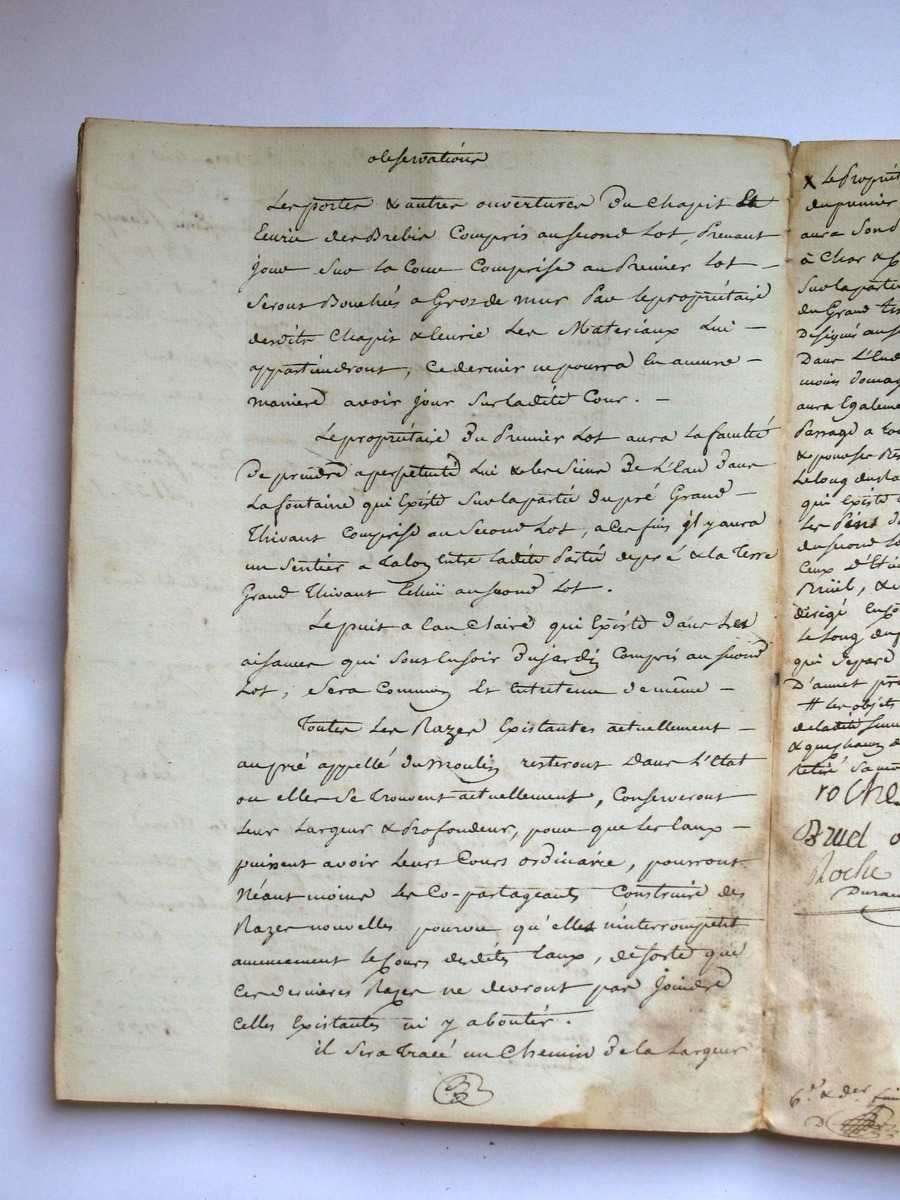 observations
Les portes & autres ouvertures Du Chapit Et
Ecurie des Brebis Compris au second Lot, Prenant
jour Sur la Cour Comprise au Premier Lot —
Seront Bouchés a Gros de mur Par le propriétaire
desdits Chapit & Ecurie Les Materiaux Lui —
appartiendront, ce dernier ne pourra En aucune —
maniere avoir jour Sur ladite Cour. —
Le propriétaire Du Premier Lot aura la faculté
De prendre a perpetuité Lui & les Siens De L'Eau Dans
La fontaine qui Existe Sur la partie du pré Grand —
Thivant Comprise au Second Lot, a ces fins il y aura
un Sentier a Talon Entre Ladite Partie de pré & la Terre
Grand Thivant Echue au second Lot.
Le puit a Eau Claire qui Existe Dans Les
aisances qui Sont En Soir Du jardin Compris au second
Lot, Sera Commun Et Entretenu de même —
Toutes Les Razes Existantes actuellement —
au pré appellé du Moulin resteront Dans L'Etat
ou elles Se Trouvent actuellement, Conserveront
Leur Largeur & Profondeur, pour que Les Eaux —
puissent avoir Leurs Cours ordinaire, pourront
Néant moins Les Co-partageants Construire des
Razes nouvelles pourvu qu'elles n'interrompent
aucunement le Cours desdites Eaux, de sorte que
Ces dernieres Razes ne devront pas Joindre
Celles Existantes ni y aboutir.
il Sera Tracé un Chemin De la Largeur
x Le Propriét
du premier
aura Son d
à Char &
Sur la partie
du Grand
Désigné au
Dans L'End
moins domag
aura Egaleme
Passage a
& pour se
Le long
qui Existe
Les
du second Lo
Ceux
Bruel, &
dirigé
le Long du
qui Separe
D'
# Les objets
de ladite
& que
Retiré
roche
Bruel
Roche
Duran
6.e & der